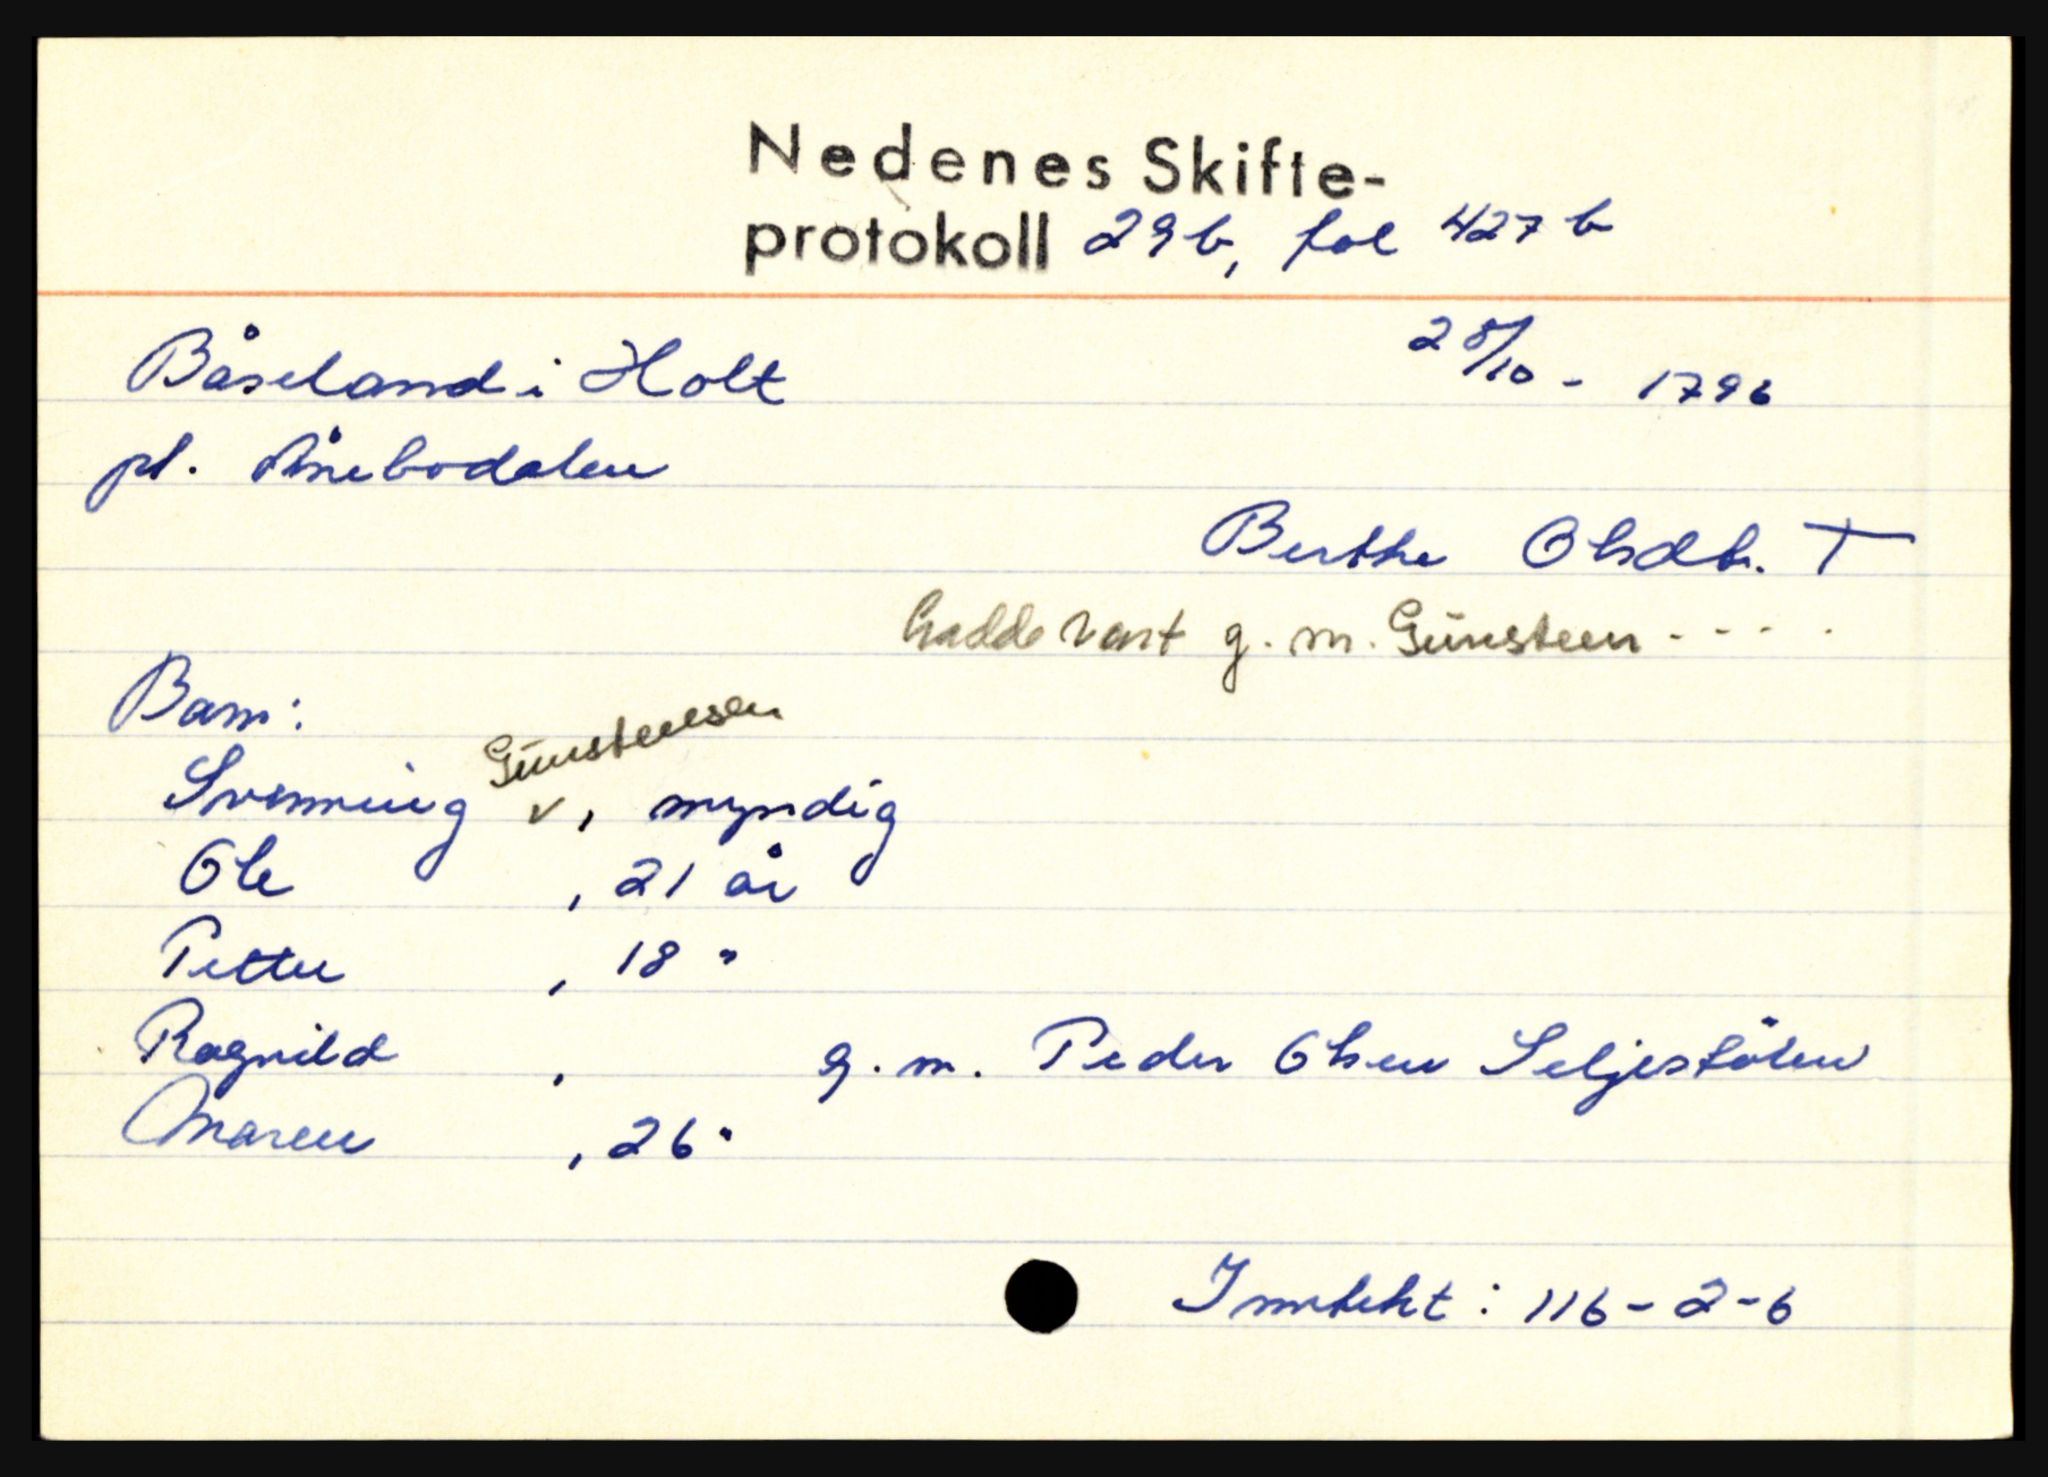 Nedenes Skifte-
protokoll 29b, fol 427 b
Båseland i Holt 28/10 - 1796
pl. Ånebodalen
Berthe Olsdtr. †
hadde vært g. m. Günsteen - - - -
Barn:
Svenning Günsteensen v, myndig
Ole , 21 år
Petter , 18 "
Ragnild , g. m. Peder Olsen Seljestölen
Maren , 26 "
Inntekt : 116 - 2 - 6